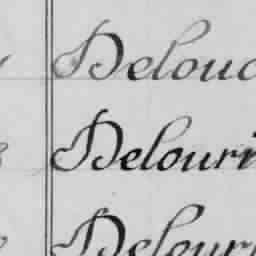 Delouc
Delourr
Delour